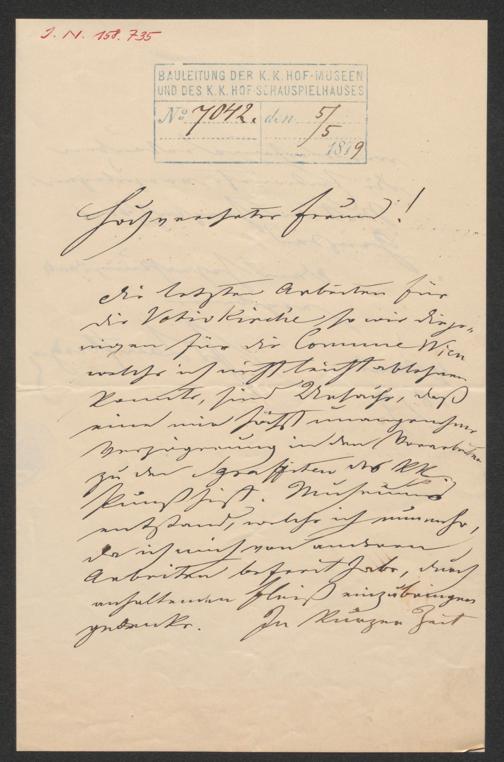 J. N. 158.735
BAULEITUNG DER K. K. HOF-MUSEEN
UND DES K. K. HOF-SCHAUSPIELHAUSES
No 7042. den 5/5
1879
Hochverehrter Freund!
Die letzten Arbeiten für
die Votivkirche so wie dieje-
nigen für die Commune Wien
welche ich nicht leicht ablehnen
konnte, sind Ursache, daß
eine mir höchst unangenehme
Verzögerung in den Vorarbeiten
zu den Sgraffiten des k.k.
Kunsthist. Museums
entstand, welche ich nunmehr,
da ich mich von anderen
Arbeiten befreit habe, durch
anhaltenden Fleiß einzubringen
gedenke. In kurzer Zeit